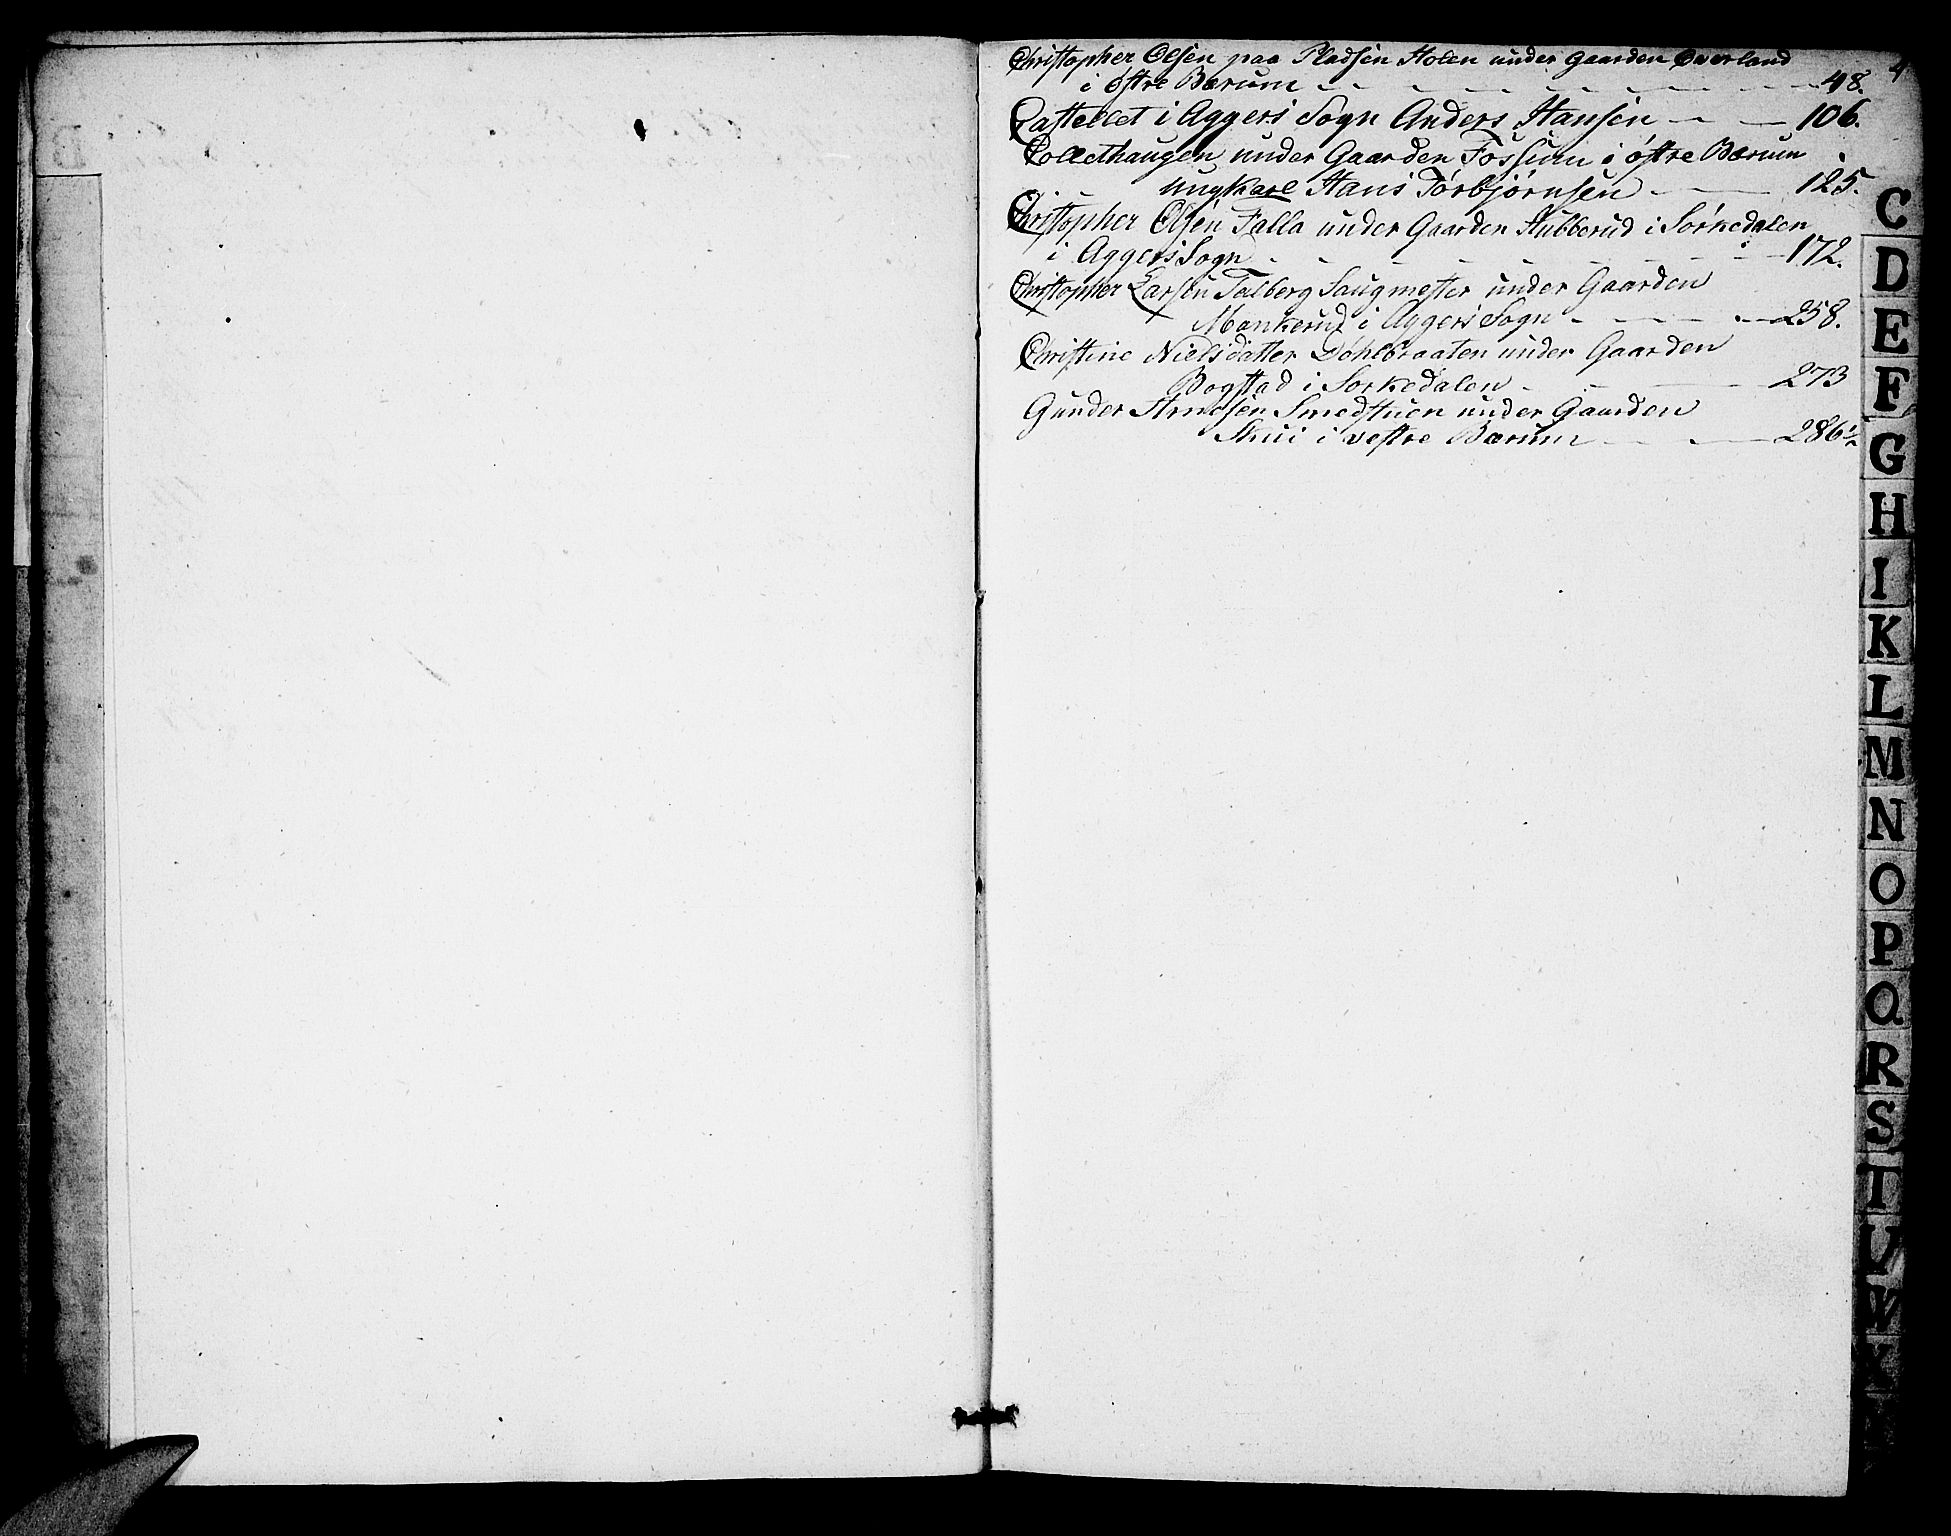 Christopher Olsen paa Pladsen Holen under Gaarden Overland
i østre Bærum - - - - - 48.
4
Castellet i Aggers Sogn Anders Hansen - - 106.
Collethaugen under Gaarden Fossum i østre Bærum
ungkarl Hans Torbjørnsen - - 125.
Christopher Olsen Falla under Gaarden Stubberud i Sørkedalen
i Aggers Sogn - - - - - 172.
Christopher Larsen Talberg Saugmester under Gaarden
Mankerud i Aggers Sogn - - - 258.
Christine Nielsdatter Døhlbraaten under Gaarden
Bogstad i Sorkedalen - - - 273
Gunder Arnesen Smedstuen under Gaarden
Skui i vestre Bærum - - - 286½
C
D
E
F
G
H
I
K
L
M
N
O
P
Q
R
S
T
V
B